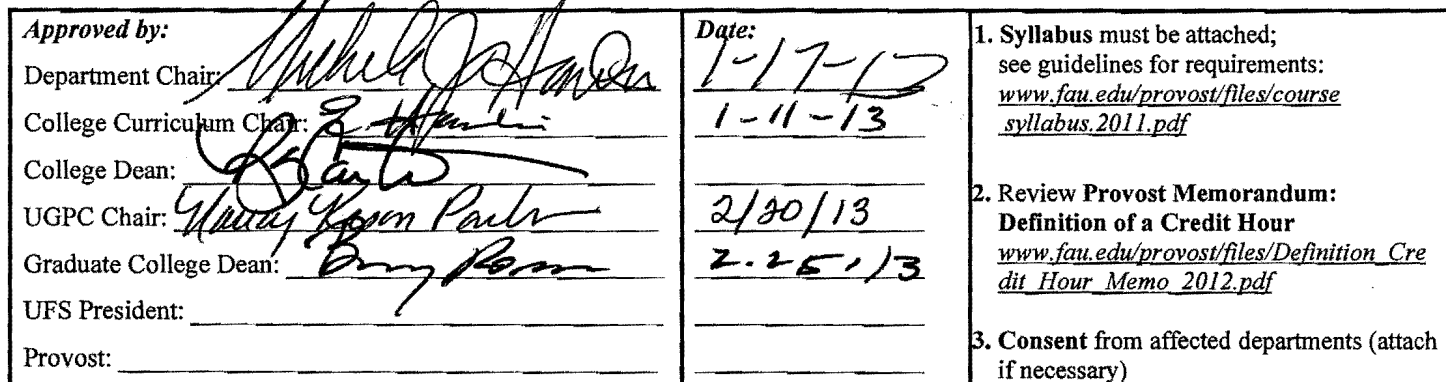 Approved by:
Department Chair:
College Curriculum Chair:
College Dean:
UGPC Chair:
Graduate College Dean:
UFS President:
Provost:
Date:
1-11-13
2/20/13
2.25.13
1. Syllabus must be attached;
see guidelines for requirements:
www.fau.edu/provost/files/course
syllabus.2011.pdf
2. Review Provost Memorandum:
Definition of a Credit Hour
www.fau.edu/provost/files/Definition_Cre
dit_Hour_Memo_2012.pdf
3. Consent from affected departments (attach
if necessary)